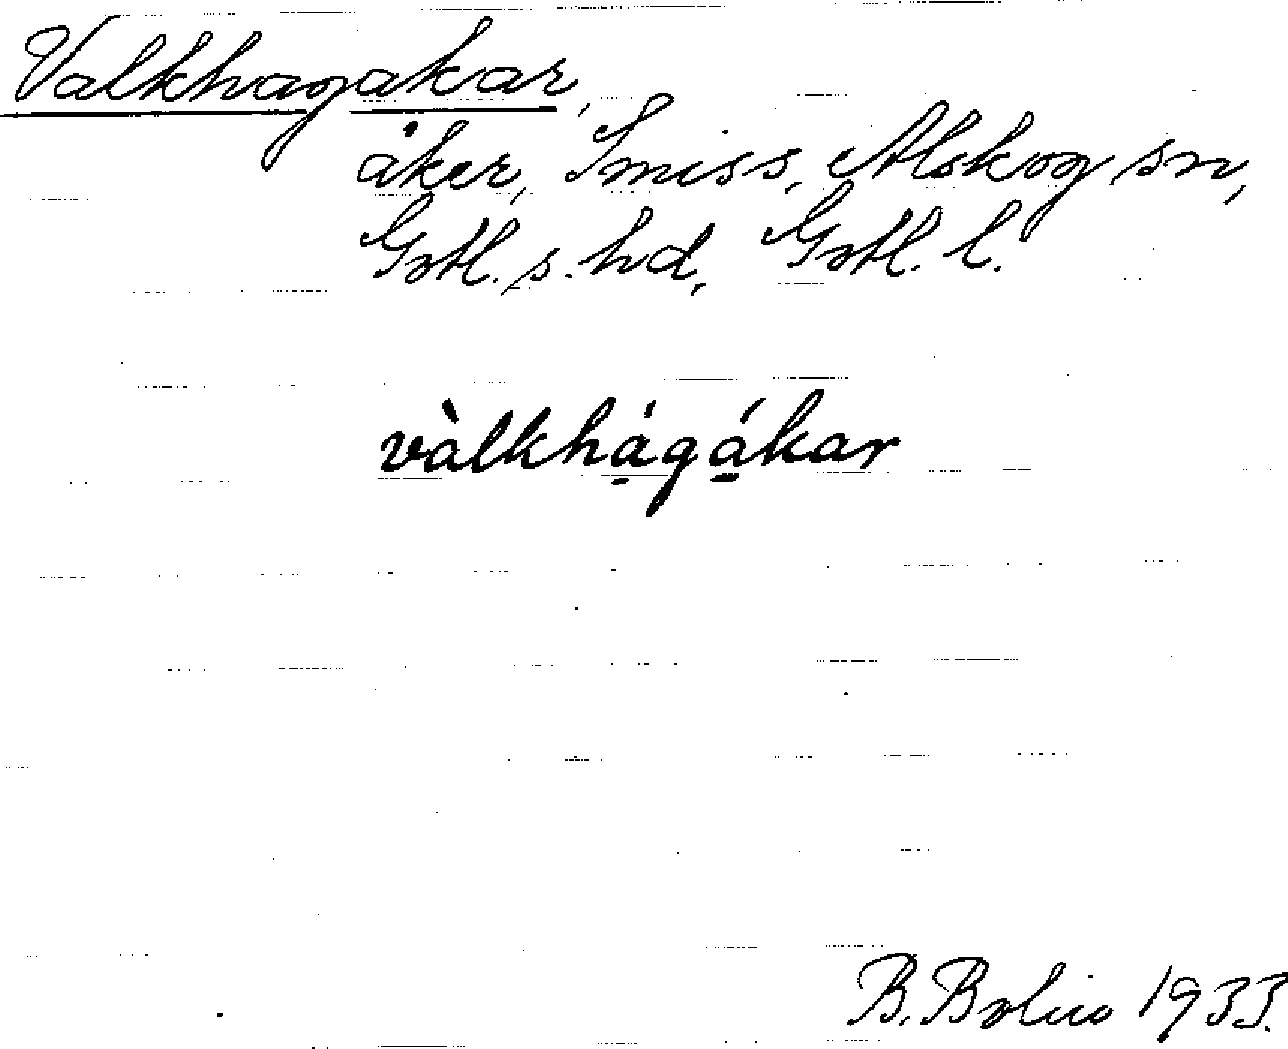 Valkhagakar,
åker, Smiss, Alskog sn,
Gotl. s. hd, Gotl. l.
vàlkhá̱gá̱kar
B. Bolin 1933.